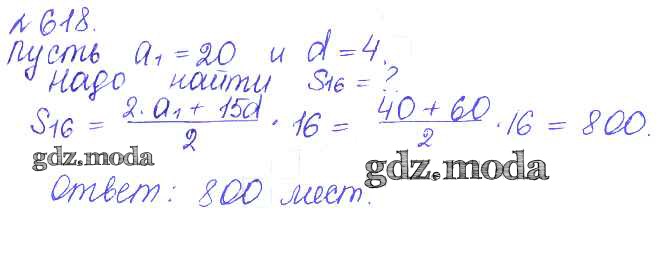 №618.
Пусть a₁ = 20 и d = 4.
Надо найти S₁₆ = ?
S₁₆ = (2·a₁ + 15d)/2 · 16 = (40 + 60)/2 · 16 = 800.
gdz.moda
gdz.moda
Ответ: 800 мест.